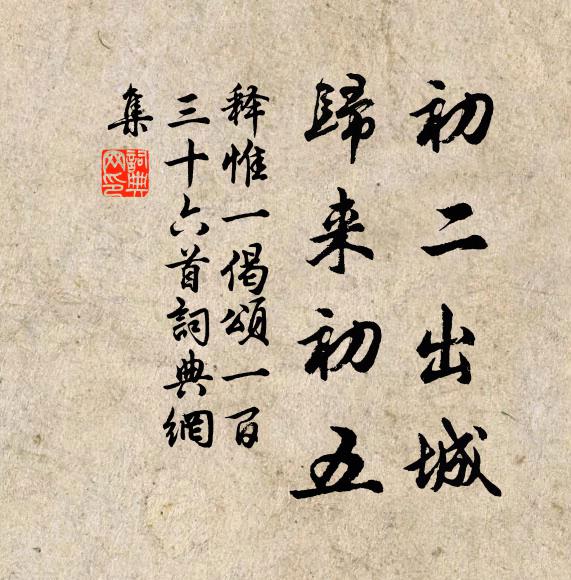 初二出城
歸来初五
释惟一偈頌一百
三十六首詞典網
集
詞典
网印